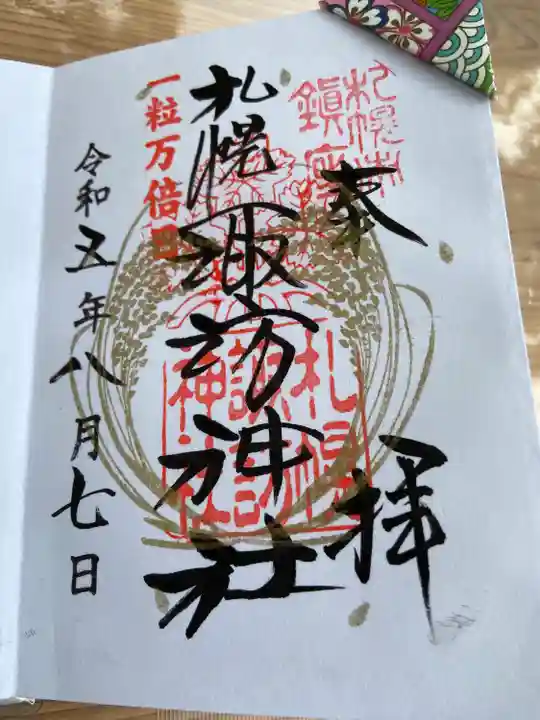 奉拝
札幌諏訪神社
一粒万倍日
令和五年八月七日
札幌諏訪神社